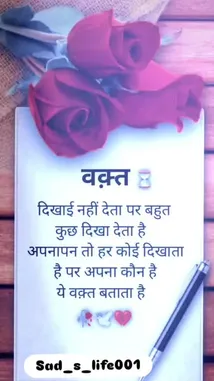 वक़्त ⏳
दिखाई नहीं देता पर बहुत
कुछ दिखा देता है
अपनापन तो हर कोई दिखाता
है पर अपना कौन है
ये वक़्त बताता है
🥀🕊️❤️
Sad_s_life001